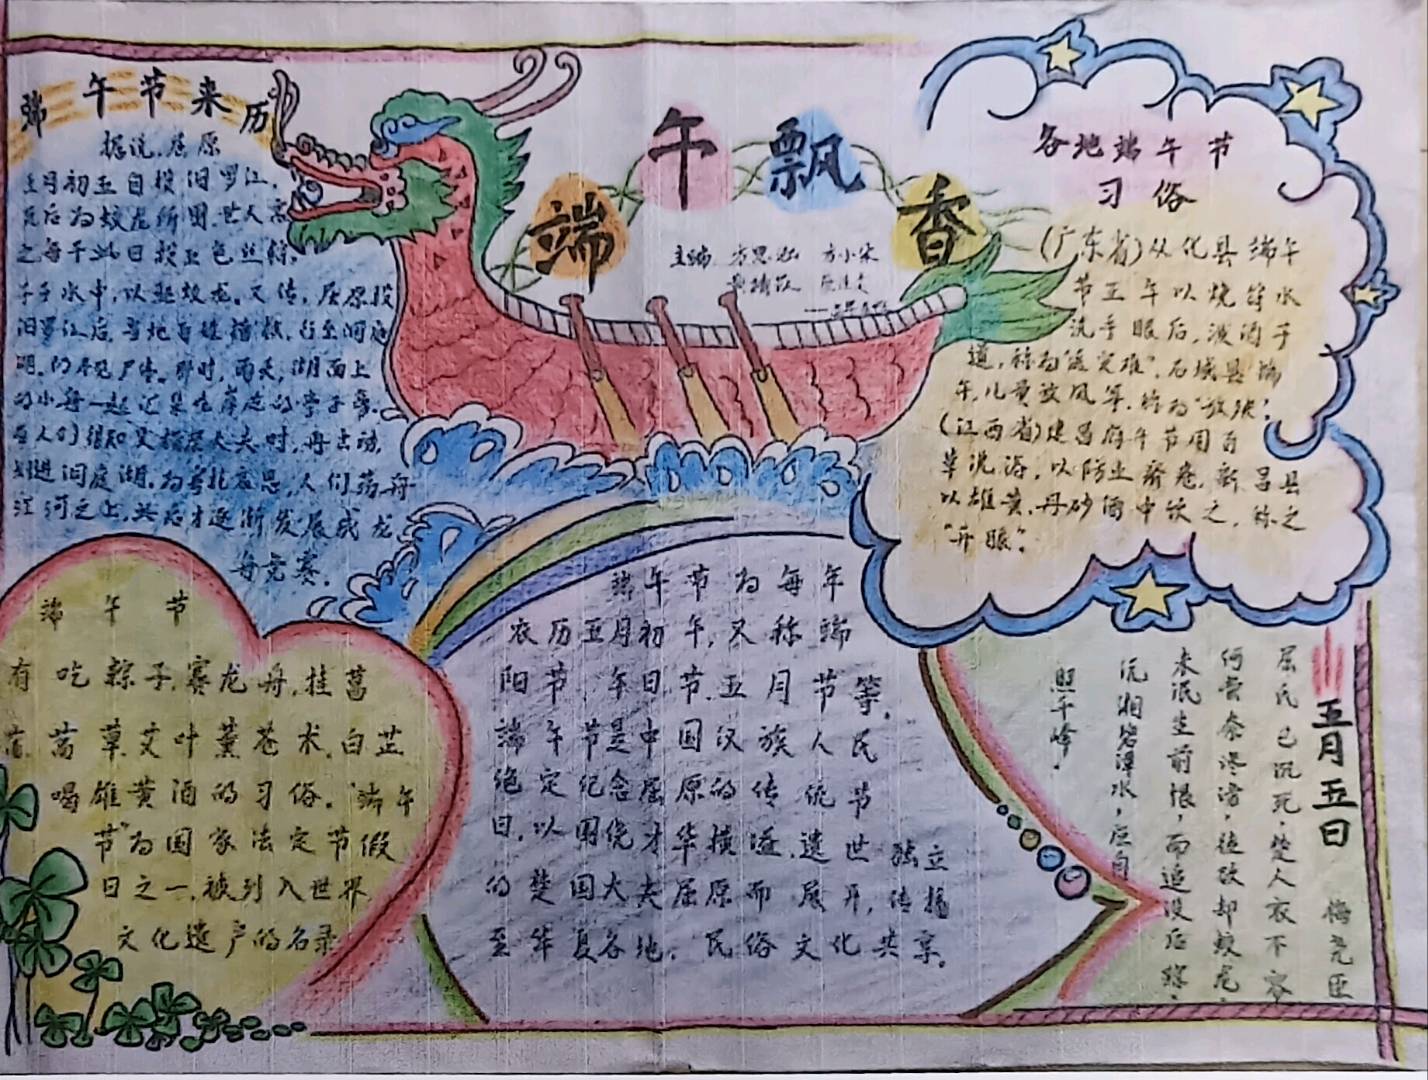 端午飘香
主编
端午节来历
据说,屈原
五月初五自投汨罗江,
死后为蛟龙所困,世人哀
之,每于此日投五色丝粽
子于水中,以驱蛟龙。又传,屈原投
汨罗江后,当地百姓
湖,时,雨天,湖面上
的小舟一起汇集在岸边的亭子旁。
人们得知是大夫时,再出动,
划进洞庭湖。为寄托哀思,人们荡舟
江河之上,此后才逐渐发展成龙
舟竞赛。
各地端午节
习俗
(广东省)从化县端午
节正午以烧符水
洗手眼后,泼洒于
道,称为"送灾难"。石城县端
午,儿童放风筝,称为"放殃"。
(江西省)建昌府午节用百
草洗浴,以防止疥疮,新昌县
以雄黄、丹砂酒中饮之,称之
"开眼"。
端午节
有吃粽子,赛龙舟,挂菖
蒿草,艾叶薰苍术,白芷
喝雄黄酒的习俗。"端午
节"为国家法定节假
日之一,被列入世界
文化遗产的名录
端午节为每年
农历五月初午,又称端
阳节,午日节,五月节等。
端午节是中国汉族人民
绝定纪念屈原的传统节
日,以围绕才华横溢,遗世独立
的楚国大夫屈原而展开,传播
至华夏各地,民俗文化共享。
五月五日
梅尧臣
屈氏已沉死,楚人哀不容
何尝奈谗谤,徒欲却蛟龙,
未泯生前恨,而追没后踪,
沅湘碧潭水,应自
照千峰。